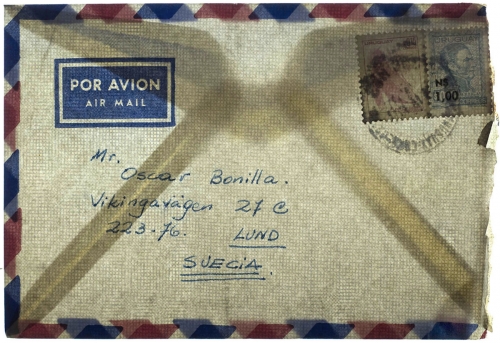 POR AVION
AIR MAIL
N$
1,00
Mr.
Oscar Bonilla.
Vikingavägen 27 C
223-76. LUND
SUECIA.